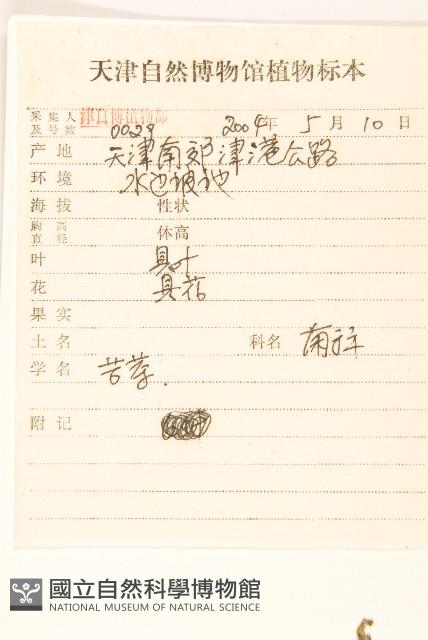 天津自然博物馆植物标本
采集人及号数 津自博植物部 0029 2004年 5月 10日
产地 天津南郊津港公路
环境 水边坡地
海拔 性状
胸高直径 体高
叶 具叶
花 具花
果实
土名 科名
学名 苦荬.
附记
國立自然科學博物館
NATIONAL MUSEUM OF NATURAL SCIENCE